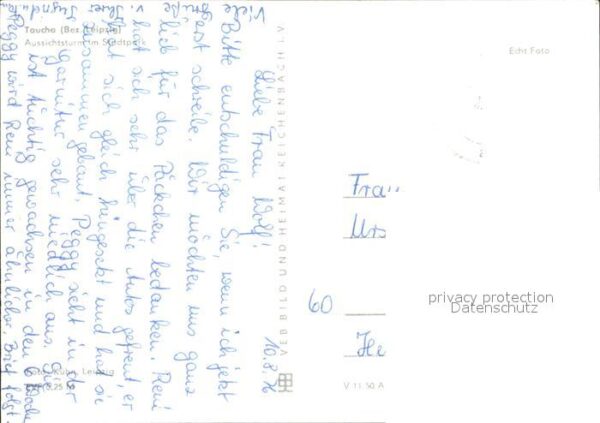 Taucha (Bez. Leipzig)
Aussichtsturm im Stadtpark
Echt Foto
10.8.76
Liebe Frau Wolf!
Bitte entschuldigen Sie, wenn ich jetzt
erst schreibe. Wir möchten uns ganz
lieb für das Päckchen bedanken. René
hat sich sehr über die Autos gefreut, er
hat sich gleich hingesetzt und hat sie
zusammen gebaut. Peggy sieht in der
Garnitur sehr niedlich aus. Sie
ist tüchtig gewachsen in den 6 Wochen
Peggy wird René immer ähnlicher. Brief folgt.
Viele
Grüße
v.
VEB BILD UND HEIMAT REICHENBACH I. V.
Foto: Kühn, Leipzig
V 11 50 A
Frau
Urs
60
He
privacy protection
Datenschutz